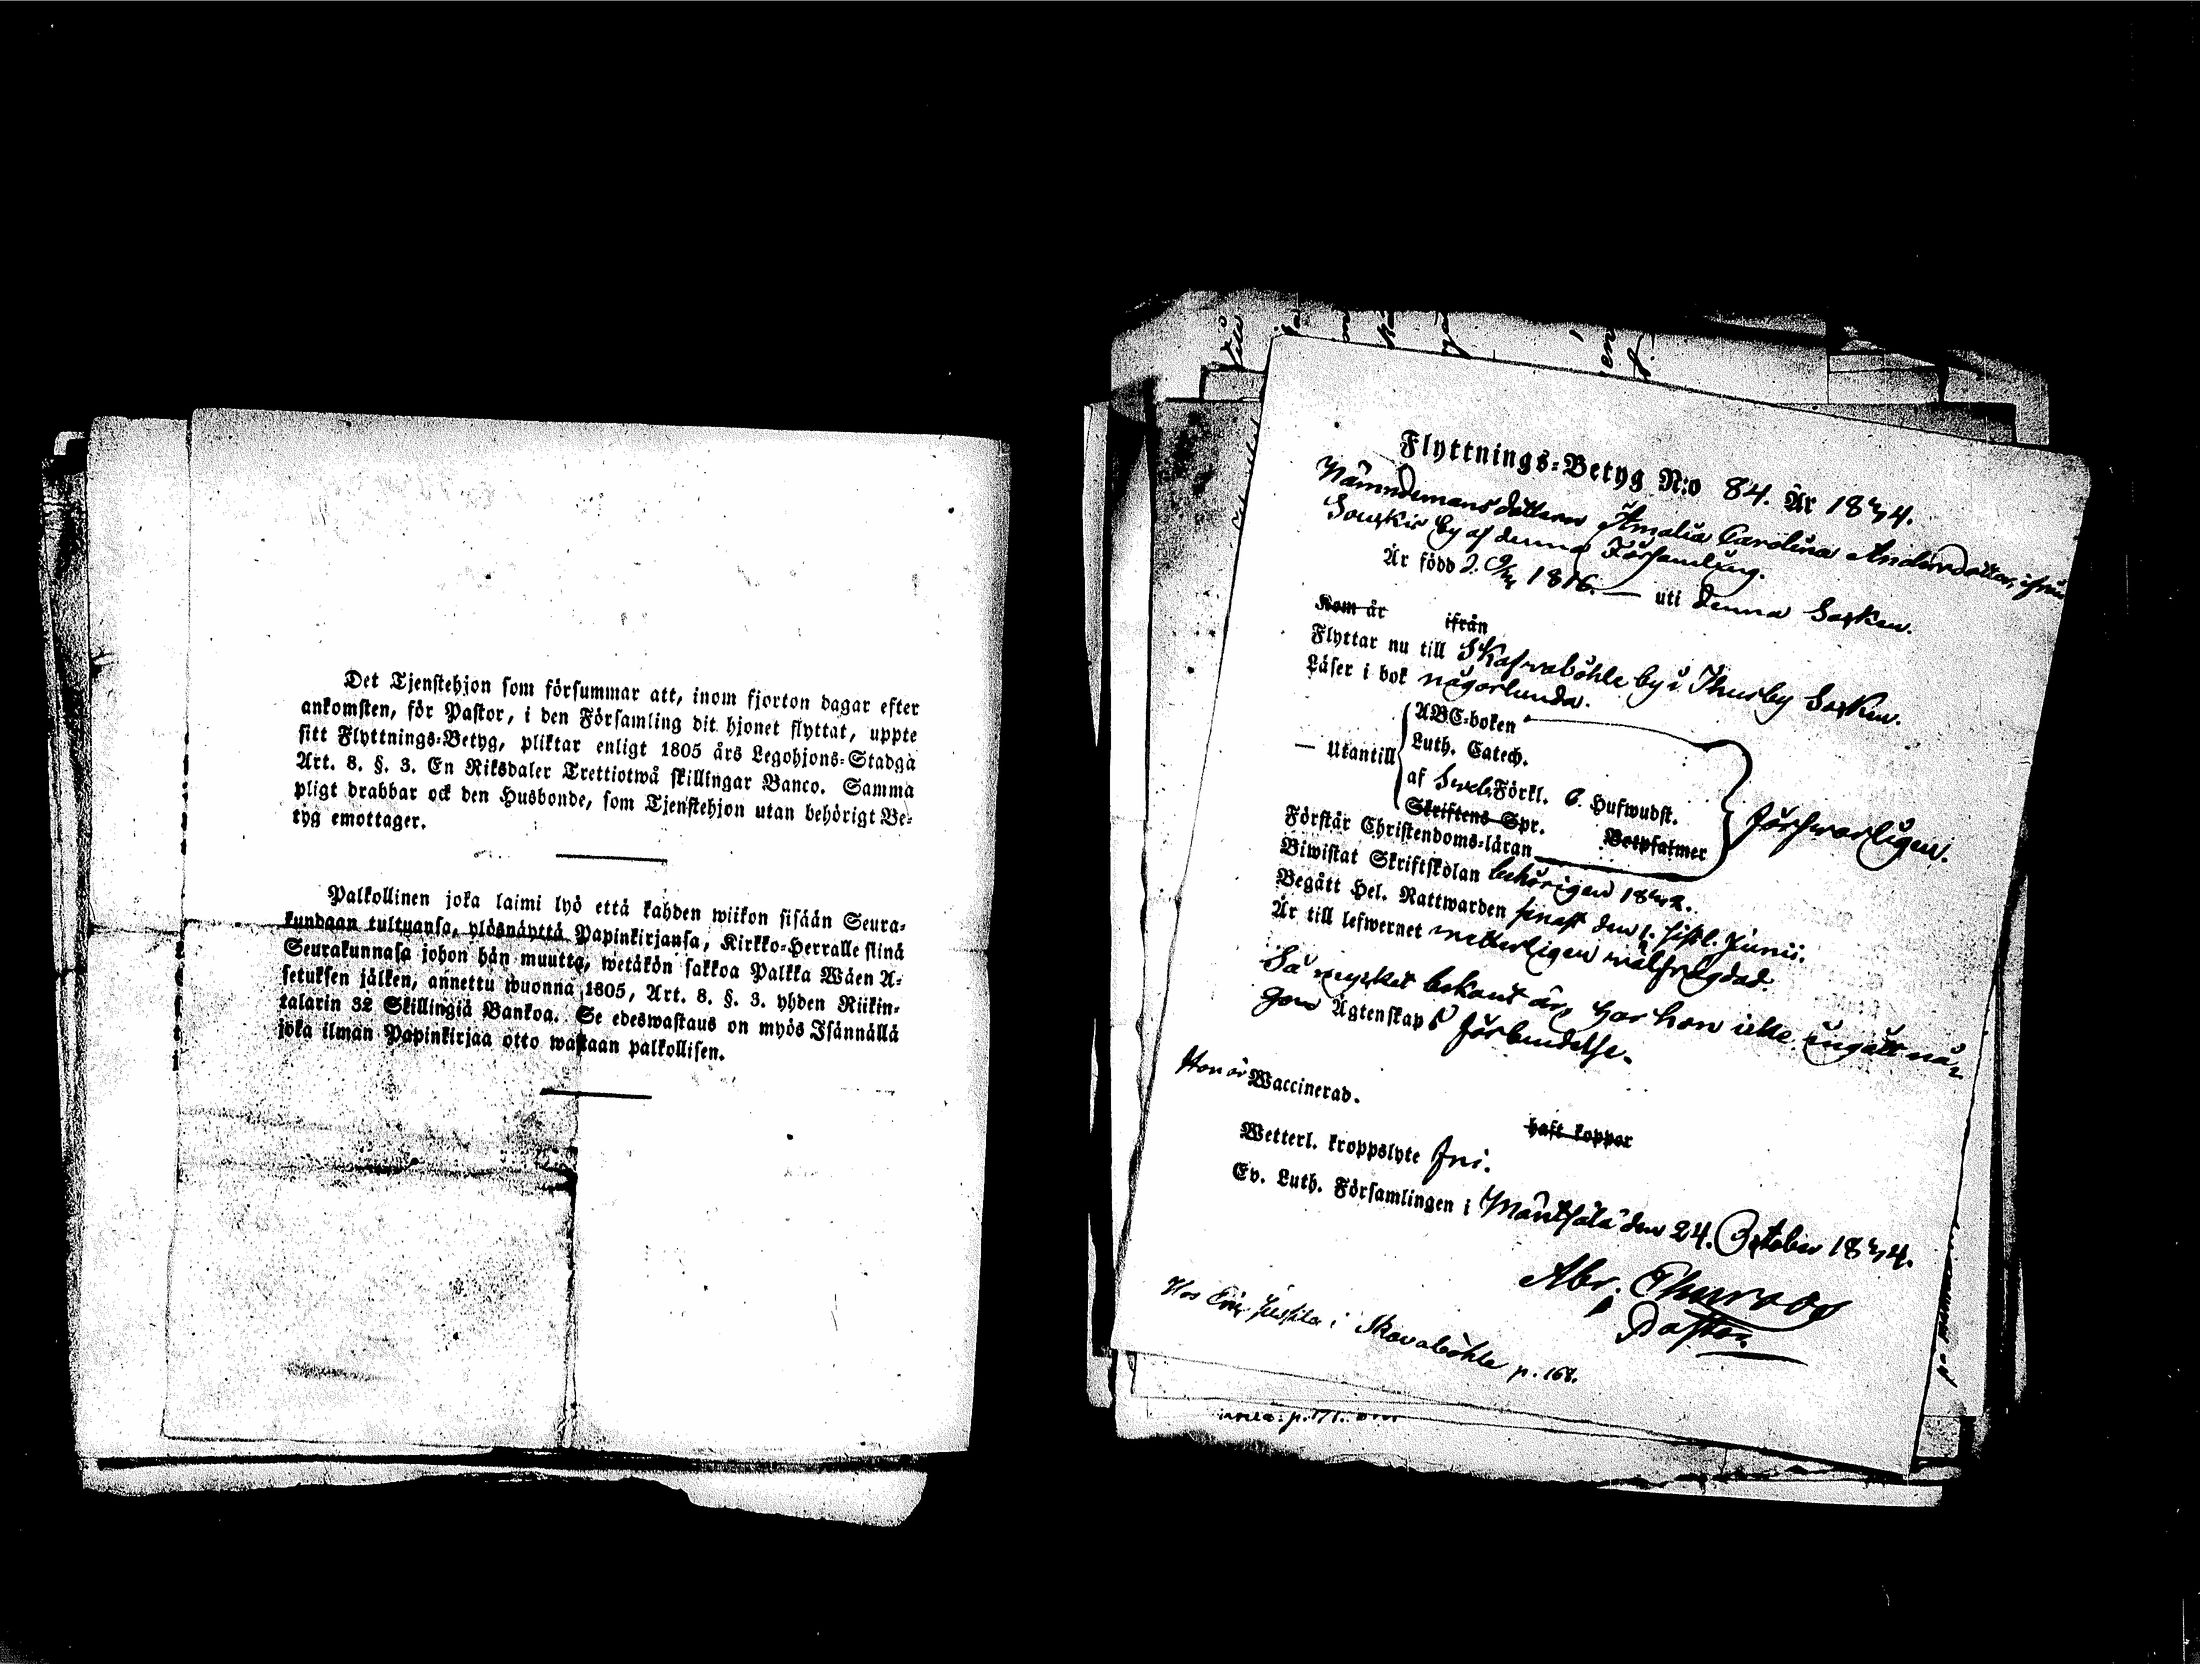 Det Tjenstehjon som försummar att, inom fjorton dagar efter
ankomsten, för Pastor, i den Församling dit hjonet flyttat, uppte
sitt Flyttnings-Betyg, pliktar enligt 1805 års Legohjons-Stadga
Art. 8. §. 3. En Riksdaler Trettiotwå skillingar Banco. Samma
pligt drabbar ock den Husbonde, som Tjenstehjon utan behörigt Be-
tyg emottager.
Palkollinen joka laimi lyö että kahden wiikon sisään Seura-
kundaan tultuansa, ylösnäyttä Papinkirjansa, Kirkko-Herralle siinä
Seurakunnasa johon hän muutta, wetäkön sakkoa Palkka Wäen A-
setuksen jälken, annettu wuonna 1805, Art. 8. §. 3. yhden Riikin-
talarin 32 Skillingiä Bankoa. Se edeswastaus on myös Isännällä
joka ilman Papinkirjaa otto wastaan palkollisen.
Flyttnings-Betyg N:o 84. År 1844.
Nämndemansdottern Amalia Carolina Andersdotter, ifrån
by af denna Församling.
Är född d. 1816. — uti denna Socken.
Kom år ifrån
Flyttar nu till Skafvaböhle by i Thusby Socken.
Läser i bok någorlunda.
— Utantill
ABC-boken
Luth. Catech.
af Sveb. Förkl. 6. Hufwudst.
Skriftens Spr. Botpsalmer
Förstår Christendoms-läran
försvarligen.
Biwistat Skriftskolan behörigen 1842.
Begått Hel. Nattwarden sinast den 1. sistl. Junii.
Är till lefwernet wetterligen wälfrägdad.
Så mycket bekant är, har hon icke ingått nå-
gon Ägtenskaps förbindelse.
Hon är Waccinerad.
haft koppor
Wetterl. kroppslyte fri.
Ev. Luth. Församlingen i Mäntsälä den 24. October 1844.
Abr.
Pastor.
Hos Eric Jussila i Skavaböhle p. 168.
p. 171.